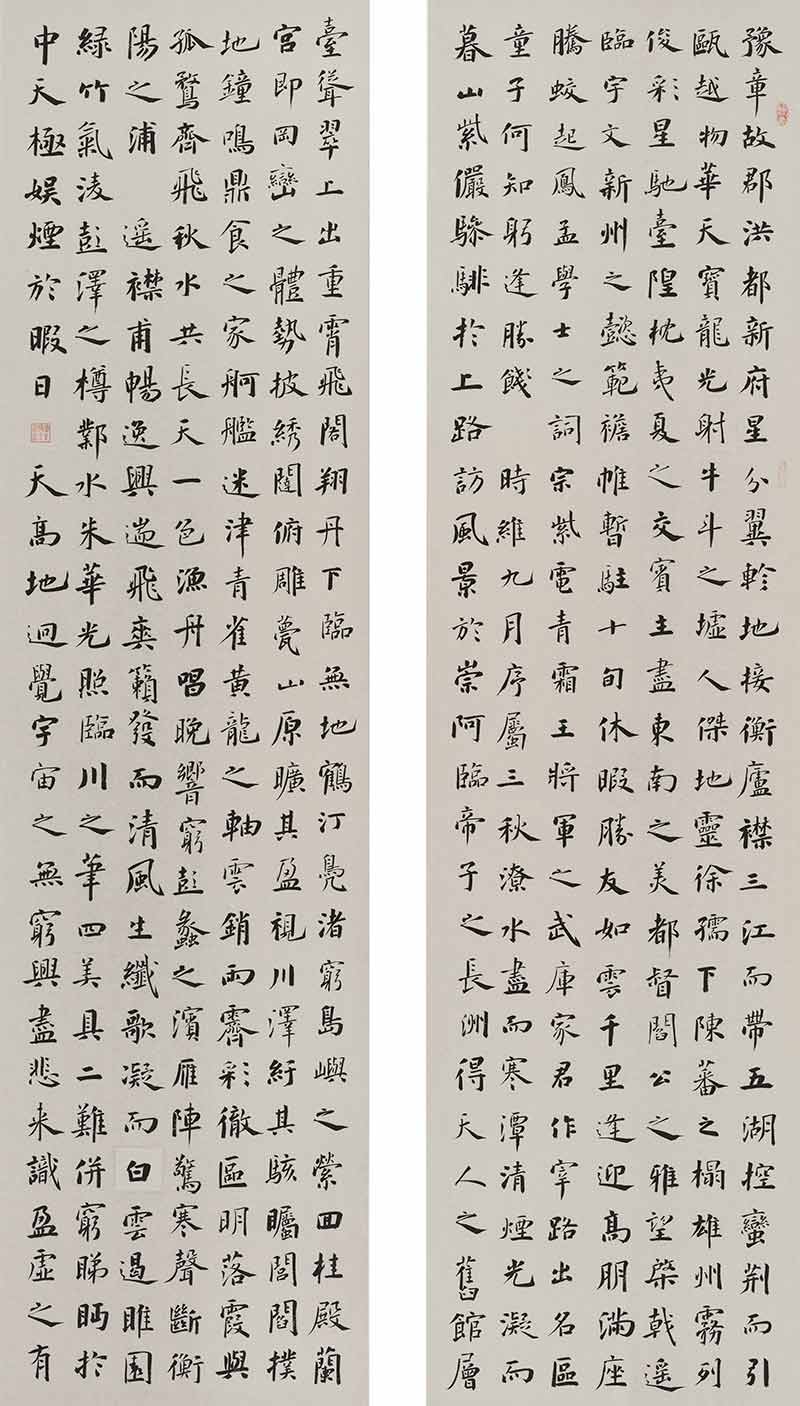 豫章故郡洪都新府星分翼軫地接衡廬襟三江而帶五湖控蠻荆而引
甌越物華天寶龍光射牛斗之墟人傑地靈徐孺下陳蕃之榻雄州霧列
俊彩星馳臺隍枕夷夏之交賓主盡東南之美都督閻公之雅望棨戟遥
臨宇文新州之懿範襜帷暫駐十旬休暇勝友如雲千里逢迎高朋滿座
騰蛟起鳳孟學士之詞宗紫電青霜王將軍之武庫家君作宰路出名區
童子何知躬逢勝餞 時維九月序屬三秋潦水盡而寒潭清煙光凝而
暮山紫儼驂騑於上路訪風景於崇阿臨帝子之長洲得天人之舊館層
臺聳翠上出重霄飛閣翔丹下臨無地鶴汀鳧渚窮島嶼之縈回桂殿蘭
宮即岡巒之體勢披綉闥俯雕甍山原曠其盈視川澤紆其駭矚閭閻撲
地鐘鳴鼎食之家舸艦迷津青雀黃龍之軸雲銷雨霽彩徹區明落霞與
孤鶩齊飛秋水共長天一色漁舟唱晚響窮彭蠡之濱雁陣驚寒聲斷衡
陽之浦 遥襟甫暢逸興遄飛爽籟發而清風生纖歌凝而白雲遏睢園
緑竹氣淩彭澤之樽鄴水朱華光照臨川之筆四美具二難併窮睇眄於
中天極娱煙於暇日 天高地迥覺宇宙之無窮興盡悲來識盈虛之有